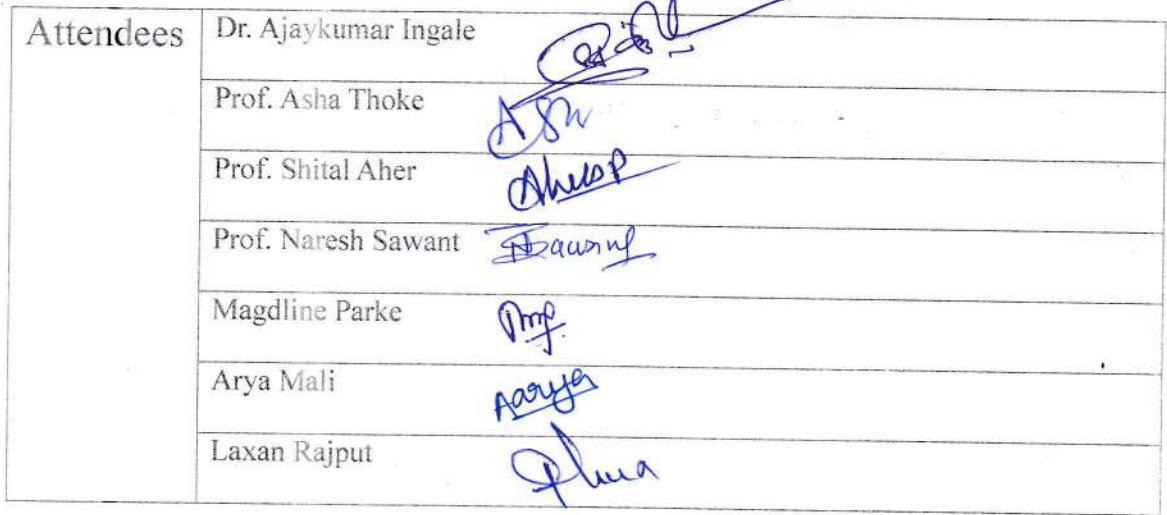 Attendees
Dr. Ajaykumar Ingale
Prof. Asha Thoke
Prof. Shital Aher
Prof. Naresh Sawant
Magdline Parke
Arya Mali
Aarya
Laxan Rajput